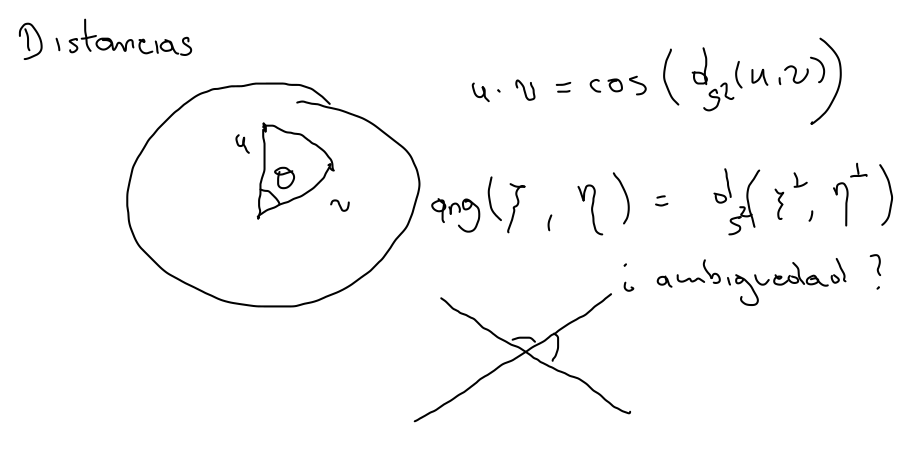 Distancias
u · v = cos(d_{S²}(u,v))
u
θ
v
ang(ξ, η) = d_{S²}(ξ^⊥, η^⊥)
¿ambiguedad?